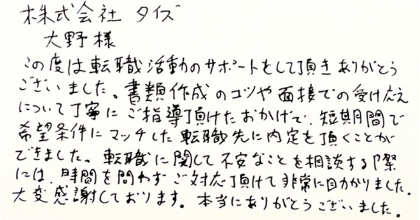 株式会社 タイズ
大野様
この度は転職活動のサポートをして頂きありがとう
ございました。書類作成のコツや面接での受け応え
について丁寧にご指導頂けたおかげで、短期間で
希望条件にマッチした転職先に内定を頂くことが
できました。転職に関して不安なことを相談する際
には、時間を問わずご対応頂けて非常に助かりました。
大変感謝しております。本当にありがとうございました。